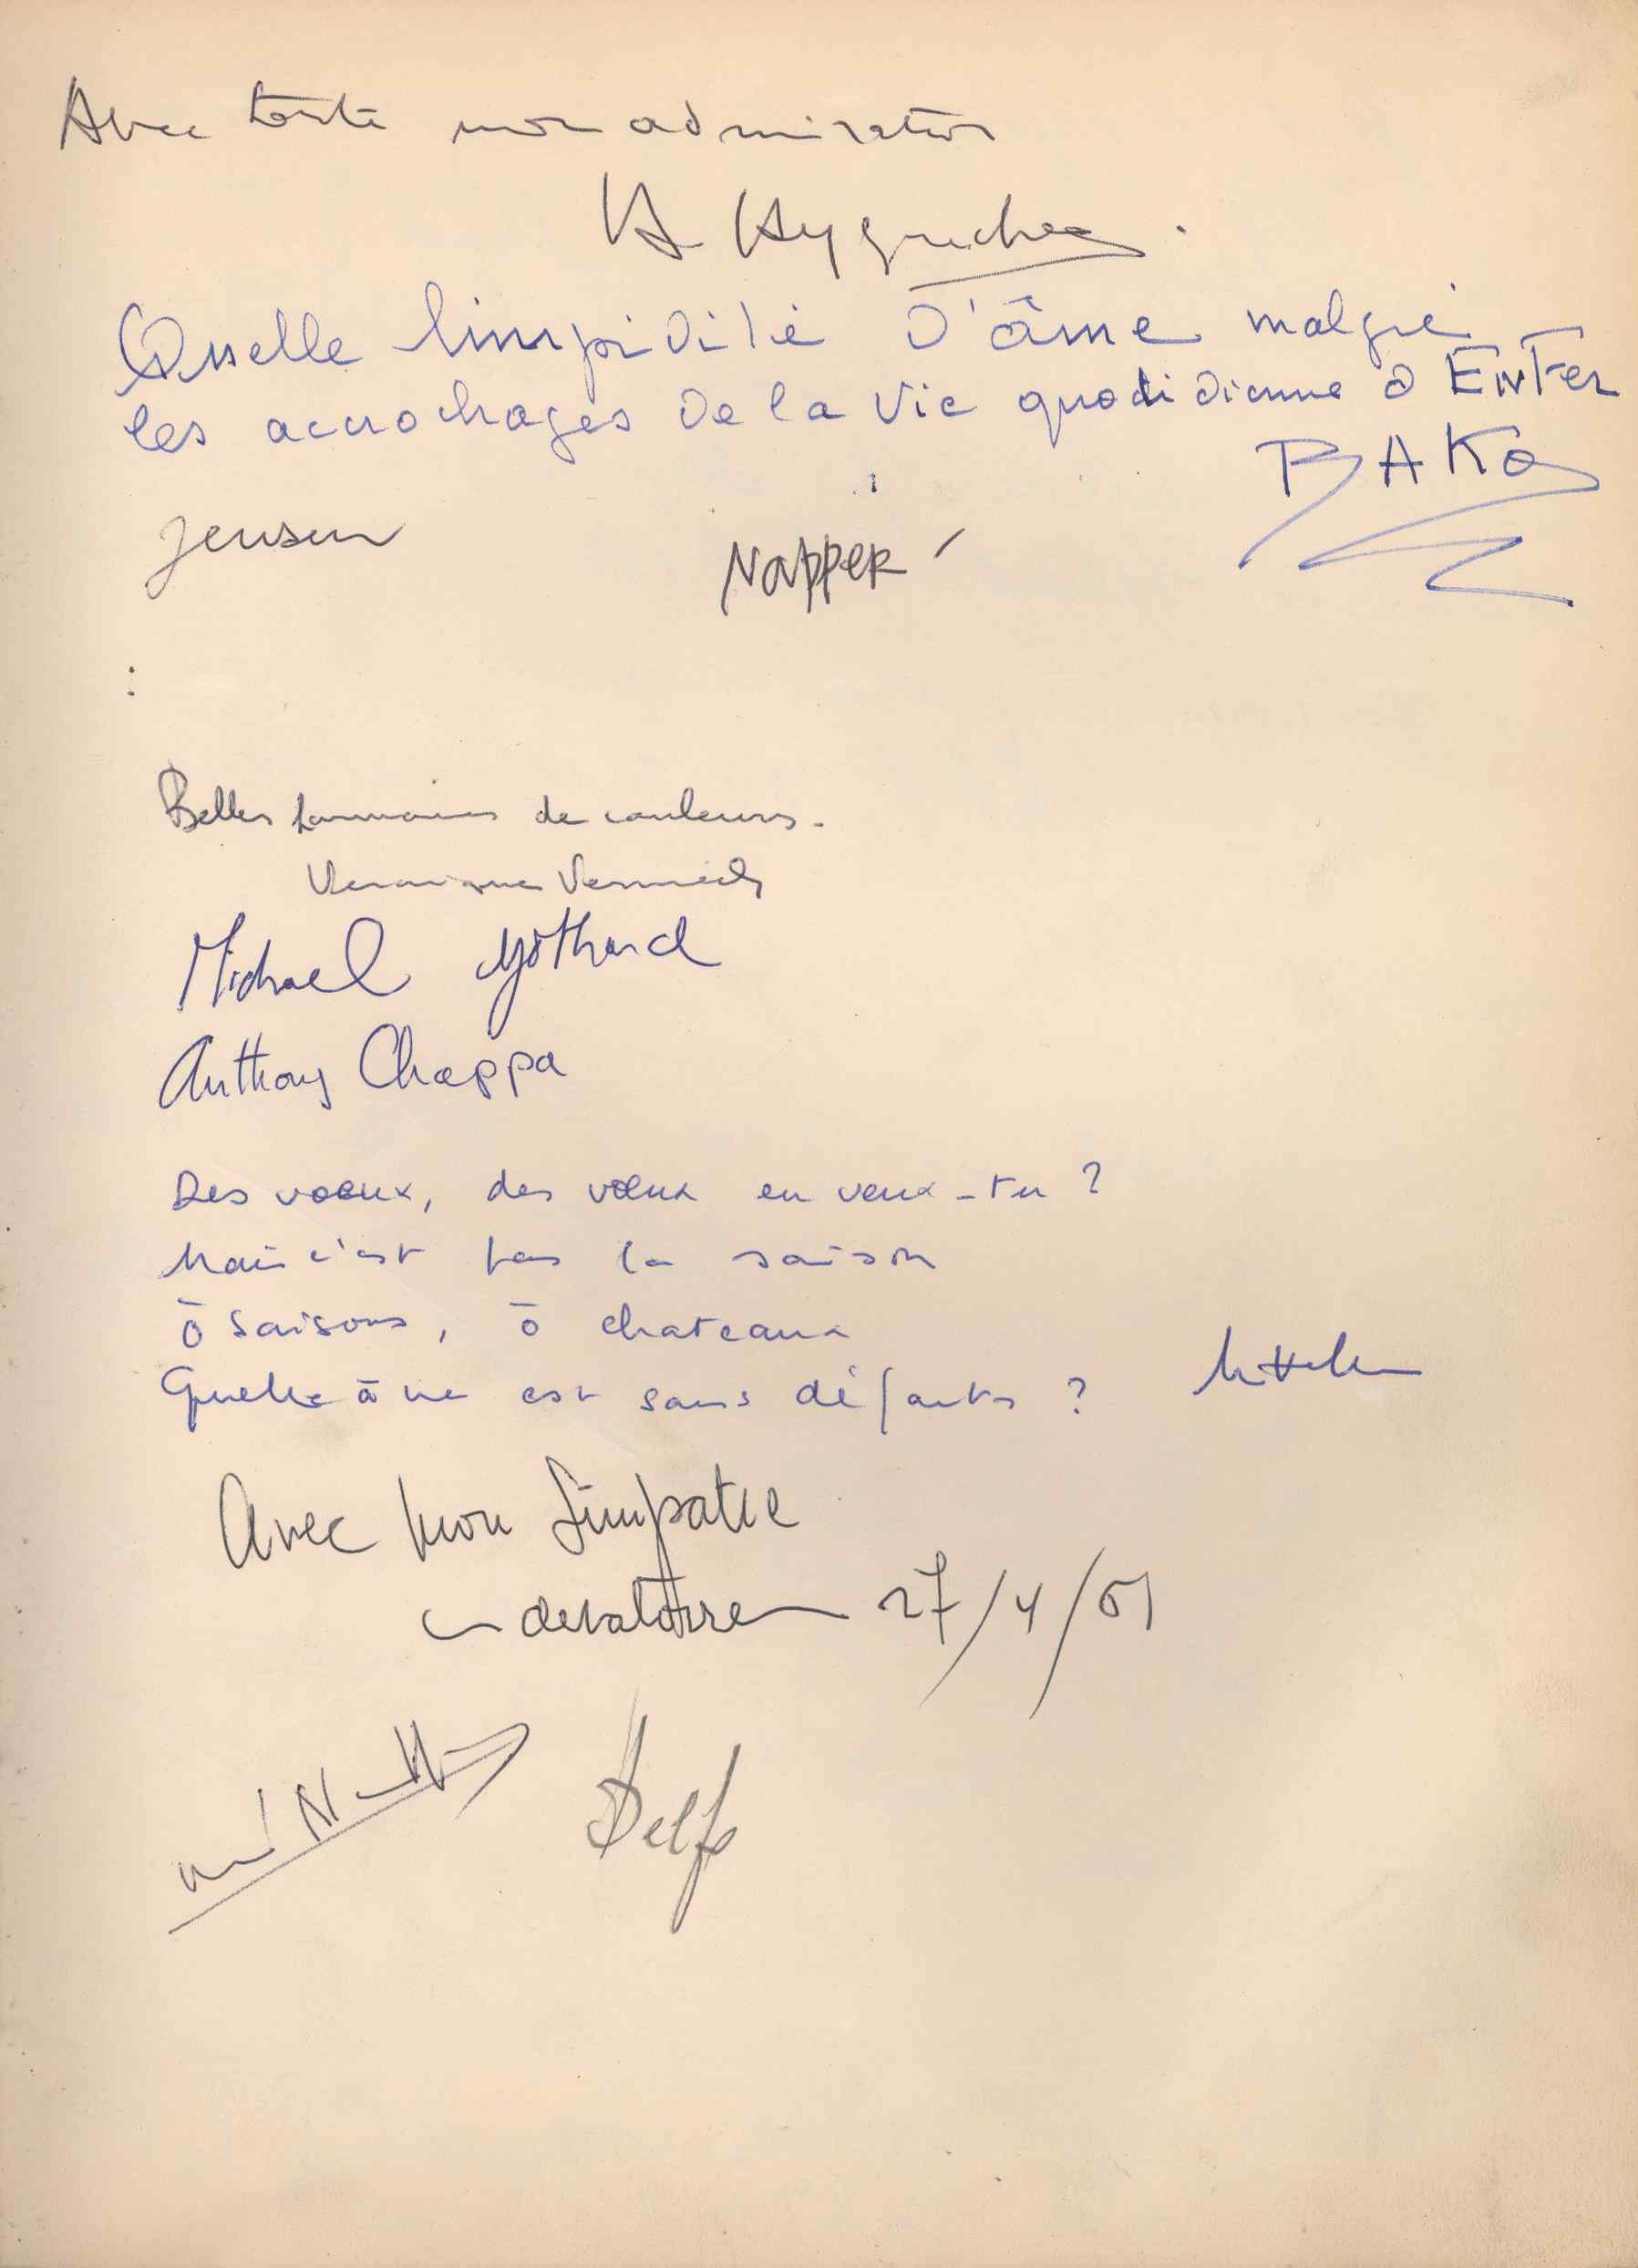 Avec toute mon admiration
Quelle limpidité d'âme malgré
les accrochages de la vie quotidienne d'ENFER
BAKO
Jensen
Napper
Belles harmonies de couleurs.
Michael Gothard
Anthony Chappa
Des voeux, des vœux en veux-tu ?
Mais c'est pas la saison
ō saisons, ō chateaux
Quelle âme est sans défauts ?
Avec mon Simpatie
27/4/61
Delfo